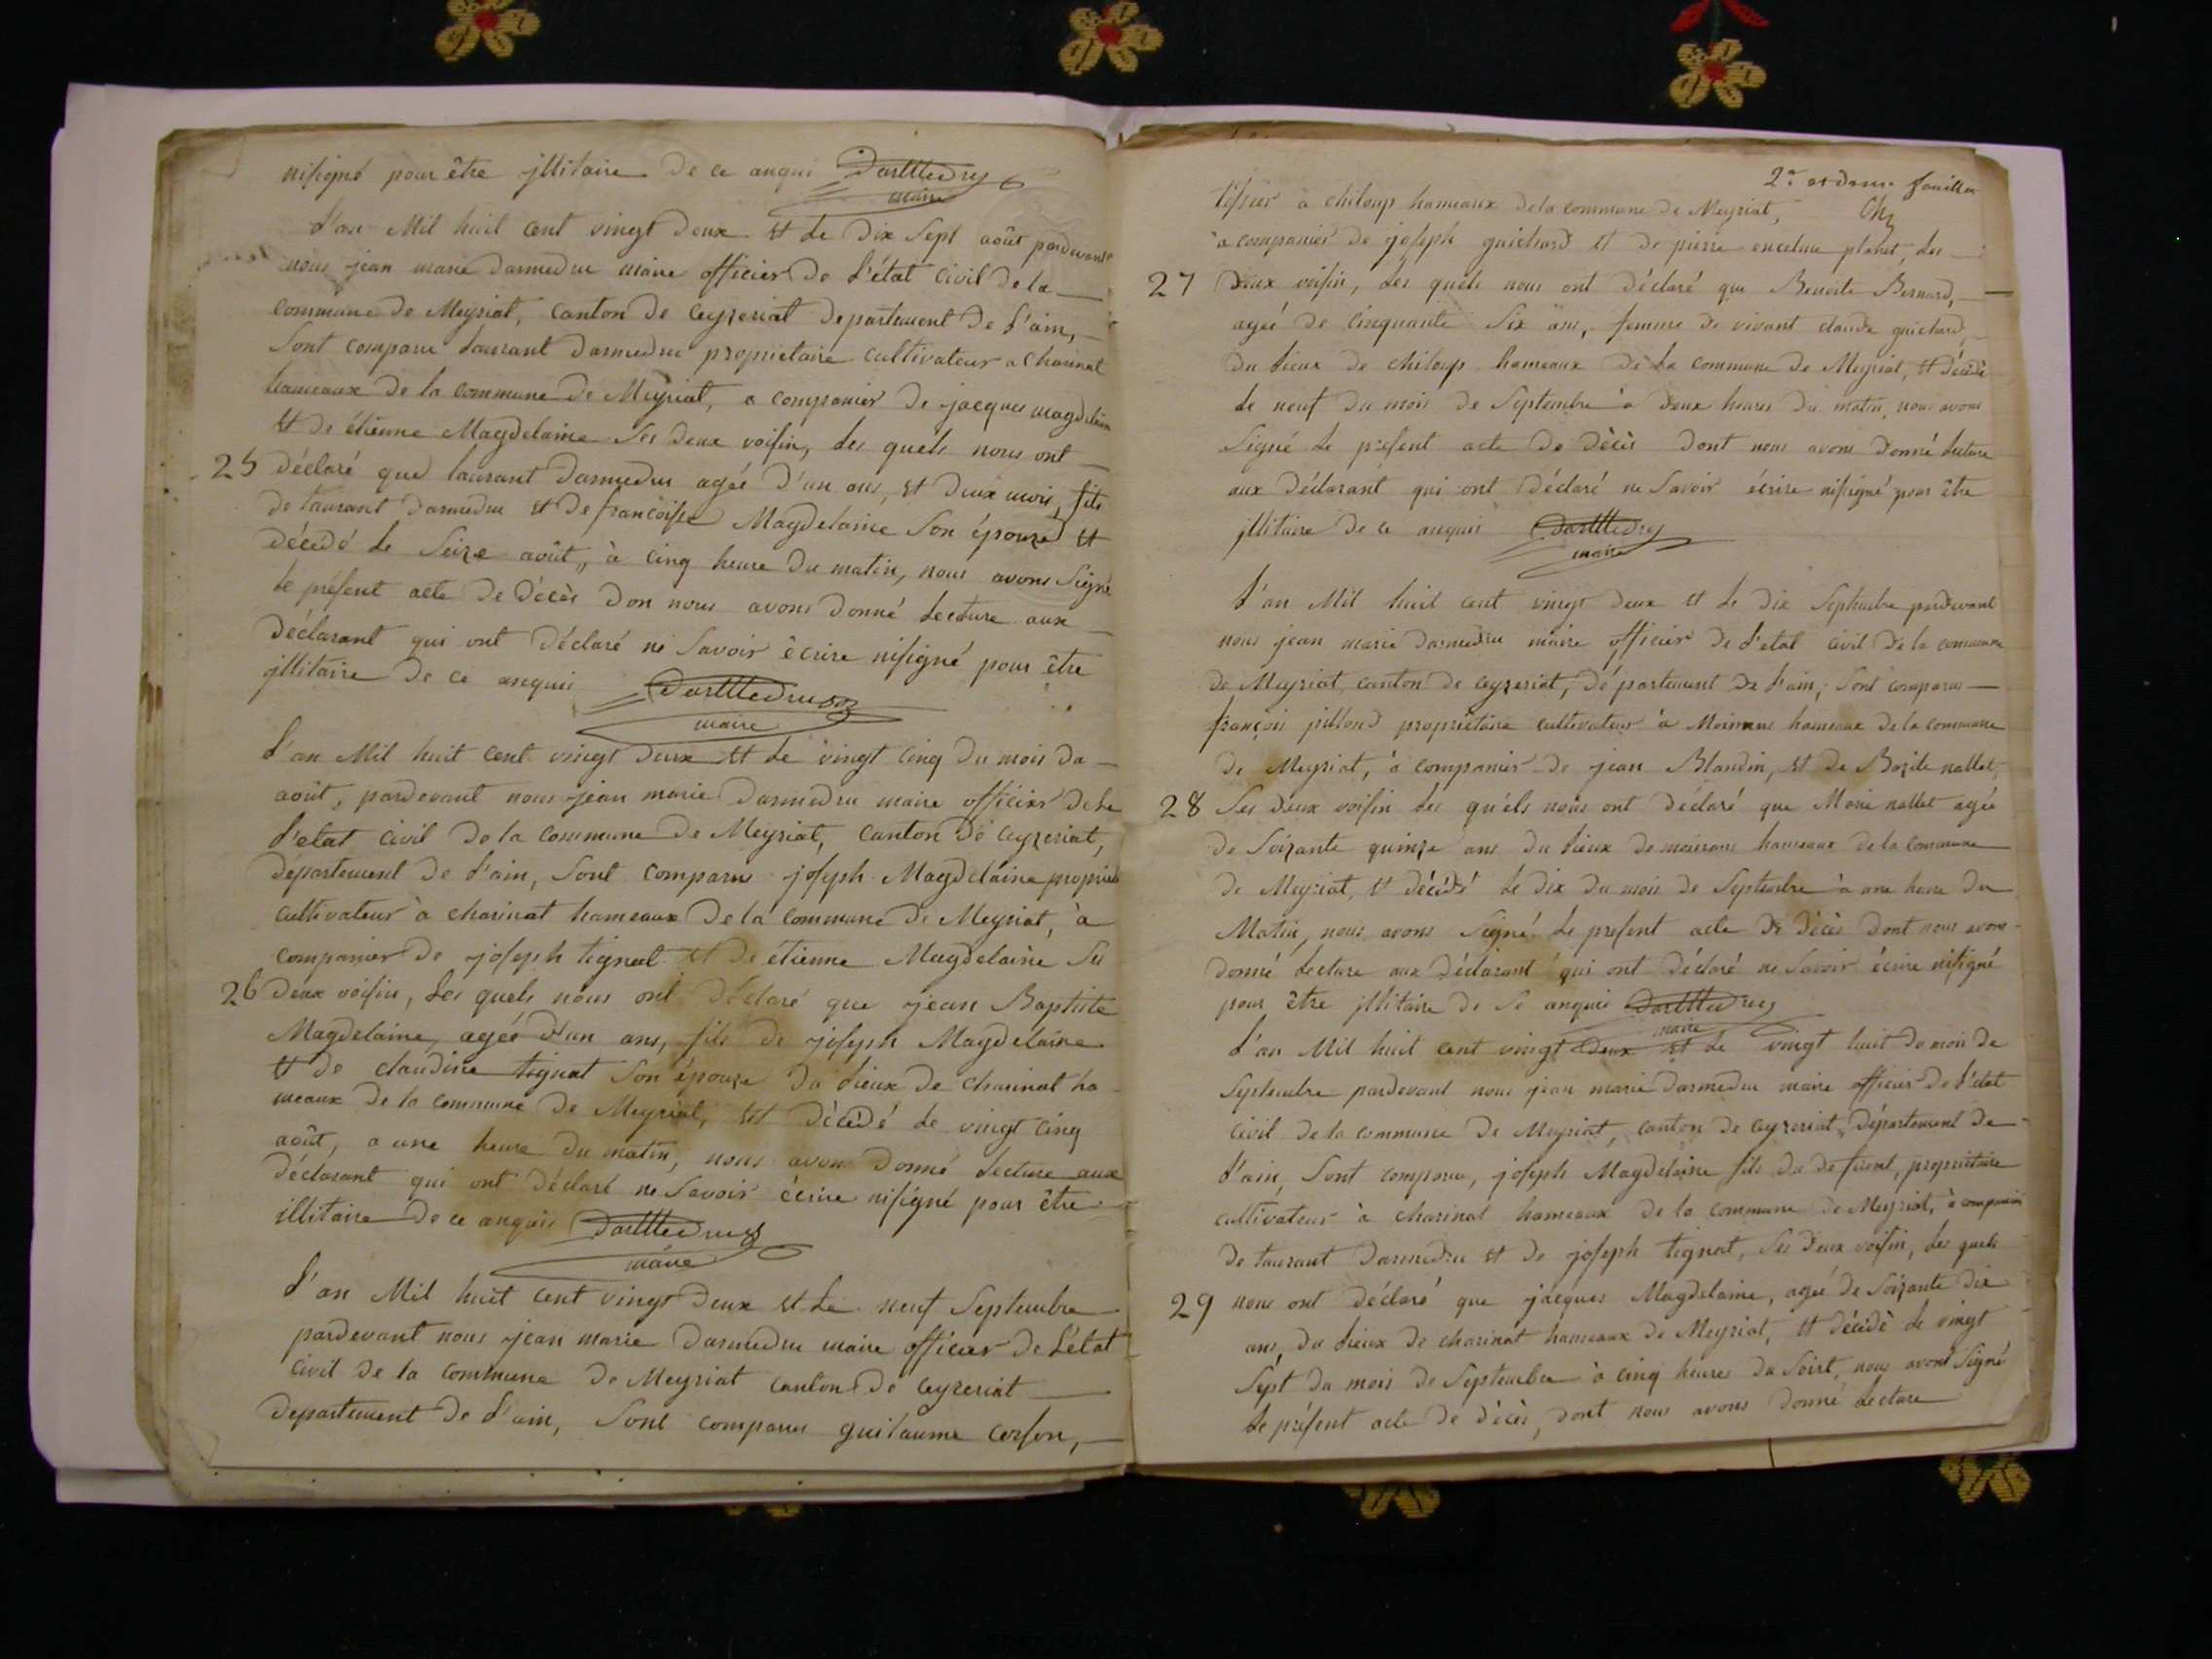 nisigné pour être jllitaire De ce anquis Darmedru
maire
L'an Mil huit cent vingt Deux et Le Dix Sept août pardevant
nous jean marie Darmedru maire officier De L'état civil De la
commune De Meyriat, canton De ceyzeriat Departement De L'ain,
Sont comparu Laurant Darmedru propriétaire cultivateur a charinat
hameaux De la commune De Meyriat, a companier De jacques magdelain
et De étienne Magdelaine Ses Deux voisin, Les quels nous ont
25 Déclaré que Laurant Darmedru agée D'un ans, et Deux mois, fils
De Laurant Darmedru et De françoisse Magdelaine Son épouze et
Décédé Le Seize août, à cinq heure Du matin, nous avons Signé
Le présent acte De Décès Don nous avons Donné Lecture aux
Déclarant qui ont Déclaré ne Savoir écrire nisigné pour être
jllitaire De ce anquis Darmedru
maire
L'an Mil huit cent vingt Deux et Le vingt cinq Du mois Da
août, pardevant nous jean marie Darmedru maire officier De Le
L'etat civil De la commune De Meyriat, canton De ceyzeriat,
Département De L'ain, Sont comparus joseph Magdelaine proprieta
cultivateur à charinat hameaux De la commune De Meyriat, à
companier De joseph tignat et De étienne Magdelaine Ses
26 Deux voisin, Les quels nous ont Déclaré que jean Baptiste
Magdelaine, agée D'un ans, fils De joseph Magdelaine
et De claudine tignat Son épouze Du Lieux De charinat ha
meaux De la commune De Meyriat, et Décédé Le vingt cinq
août, a une heure Du matin, nous avons Donné Lecture aux
Déclarant qui ont Déclaré ne Savoir écrire nisigné pour être
illitaire De ce anquis Darmedru
maire
L'an Mil huit cent vingt Deux et Le neuf Septembre
pardevant nous jean marie Darmedru maire officier De L'état
civil De la commune De Meyriat canton De ceyzeriat
Departement De L'ain, Sont comparus guilaume corson,
2e feuillet
tissier a chiloup hameaux De la commune De Meyriat,
a companier De joseph guichard et De pierre planet, Les
27 Deux voisin, Les quels nous ont Déclaré que Benoite Bernard,
agée De cinquante Six ans, femme De vivant claude guichard,
Du Lieux De chiloup hameaux De La commune De Meyriat, et Décédé
Le neuf Du mois De Septembre à Deux heures Du matin, nous avons
Signé Le présent acte De Décès Dont nous avons Donné Lecture
aux Déclarant qui ont Déclaré ne Savoir écrire nisigné pour être
jllitaire De ce anquis Darmedru
maire
L'an Mil huit cent vingt Deux et Le Dix Septembre pardevant
nous jean marie Darmedru maire officier De L'etat civil De la commune
De Meyriat, canton De ceyzeriat, Département De L'ain, Sont comparus
françois pilloud propriétaire cultivateur à Moinans hameaux De la commune
De Meyriat, à companier De jean Blandin, et De nallet,
28 Ses Deux voisin Les quels nous ont Déclaré que Marie nallet agée
De Soizante quinze ans Du Lieux De moinans hameaux De la commune
De Meyriat, et Décédé Le Dix Du mois De Septembre à une heure Du
Matin, nous avons Signé Le present acte De Décès Dont nous avons
Donné Lecture aux Déclarant qui ont Déclaré ne Savoir écrire nisigné
pour être jllitaire De Se anquis Darmedru
maire
L'an Mil huit cent vingt Deux et Le vingt huit Du mois De
Septembre pardevant nous jean marie Darmedru maire officier De L'etat
civil De la commune De Meyriat, canton De ceyzeriat, Département De
L'ain, Sont comparu, joseph Magdelaine fils Du Defient, propriétaire
cultivateur à charinat hameaux De la commune De Meyriat, à companier
De Laurant Darmedru et De joseph tignat, Ses Deux voisin, Les quels
29 nous ont Déclaré que jacques Magdelaine, agée De Soizante Dix
ans, Du Lieux De charinat hameaux De Meyriat, et Décédé Le vingt
Sept Du mois De Septembre à cinq heures Du Soirt, nous avont Signé
Le présent acte De Décès, Dont nous avons Donné Lecture